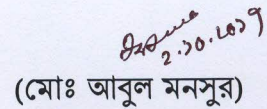 ২.১০.২০১৭
(মোঃ আবুল মনসুর)